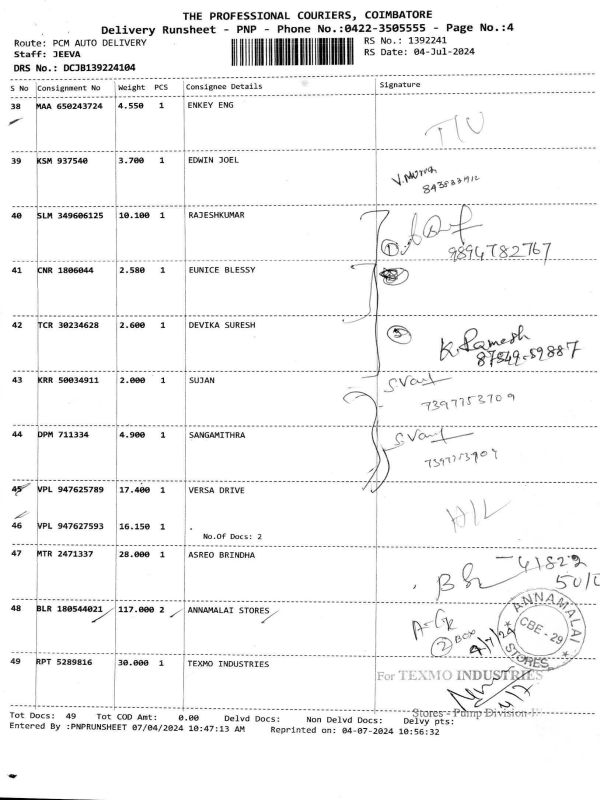 THE PROFESSIONAL COURIERS, COIMBATORE
Delivery Runsheet - PNP - Phone No.:0422-3505555 - Page No.:4
Route: PCM AUTO DELIVERY
RS No.: 1392241
Staff: JEEVA
RS Date: 04-Jul-2024
DRS No.: DCJB139224104
S No Consignment No Weight PCS Consignee Details Signature
38 MAA 650243724 4.550 1 ENKEY ENG
39 KSM 937540 3.700 1 EDWIN JOEL
40 SLM 349606125 10.100 1 RAJESHKUMAR
1
9894782767
41 CNR 1806044 2.580 1 EUNICE BLESSY
42 TCR 30234628 2.600 1 DEVIKA SURESH
K. Ramesh
87549-59887
43 KRR 50034911 2.000 1 SUJAN
7397753709
44 DPM 711334 4.900 1 SANGAMITHRA
7397753709
45 VPL 947625789 17.400 1 VERSA DRIVE
46 VPL 947627593 16.150 1 .
No.Of Docs: 2
47 MTR 2471337 28.000 1 ASREO BRINDHA
41822
48 BLR 180544021 117.000 2 ANNAMALAI STORES
2 BOX
4/7/24
ANNAMALAI STORES
CBE - 29
49 RPT 5289816 30.000 1 TEXMO INDUSTRIES
For TEXMO INDUSTRIES
4/7
Stores - Pump Division-
Tot Docs: 49 Tot COD Amt: 0.00 Delvd Docs: Non Delvd Docs: Delvy pts:
Entered By :PNPRUNSHEET 07/04/2024 10:47:13 AM Reprinted on: 04-07-2024 10:56:32